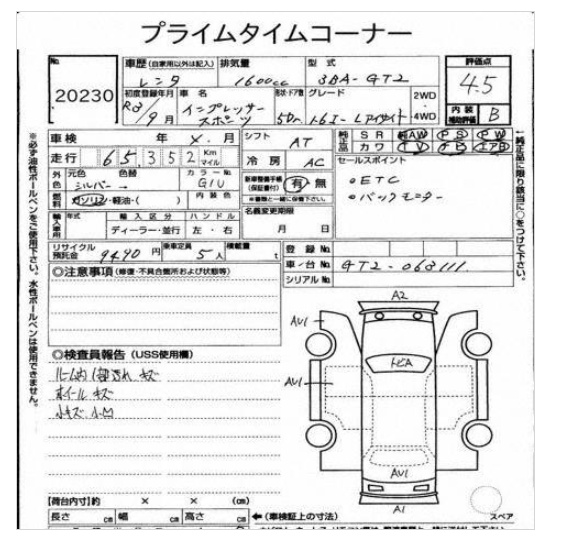 プライムタイムコーナー
No. 20230
車歴 (自家用以外は記入) 排気量 型式 評価点
レンタ 1600cc 3BA-GT2 4.5
初度登録年月 車名 形状・ドア数 グレード 2WD・4WD
R3/9月 インプレッサースポーツ 5Dr 1.6I-Lアイサイト
内装補助評価 B
車検 年 X. 月 シフト AT
純正品 SR AW PS PW
カワ TV ナビ エアB
走行 65,352 Km マイル 冷房 AC
セールスポイント
◦ETC
◦バックモニター
外色 元色 色替 カラーNo.
シルバー → G1U
新車整備手帳(保証書付) 有 無
※書類と一緒に保管下さい。
燃料 ガソリン・軽油・( ) 内装色
名義変更期限
月 日
輸入車用 年式 輸入区分 ハンドル
ディーラー・並行 左・右
リサイクル預託金 9490 円 乗車定員 5人 積載量 t
登録No.
車/台No. GT2-063111
シリアルNo.
◎注意事項 (修復・不具合箇所および状態等)
◎検査員報告 (USS使用欄)
ルーム内1部汚れ キズ
ホイールキズ
小キズ 小凹
A2
AU1
トビA
AU1
AU1
A1
スペア
【荷台内寸】約 × × (cm)
長さ cm 幅 cm 高さ cm ←(車検証上の寸法)
※必ず油性ボールペンをご使用下さい。水性ボールペンは使用できません。
←純正品に限り該当に○をつけて下さい。